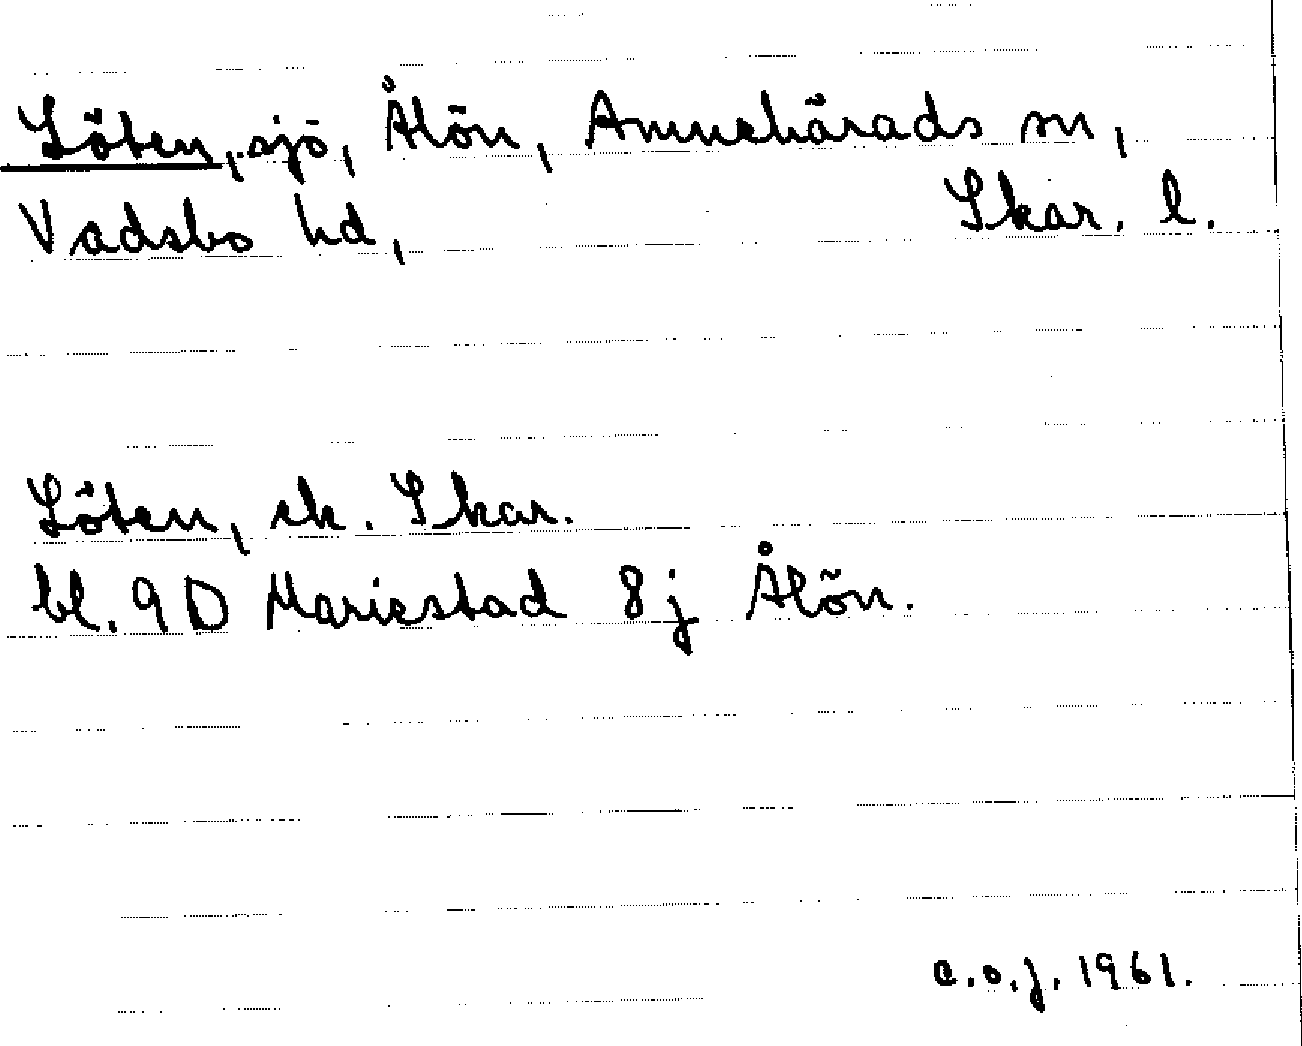 Löten, sjö, Ålön, Amnehärads sn,
Vadsbo hd, Skar. l.
Löten, ek. Skar.
bl. 9 D Mariestad 8 j Ålön.
C.O.J. 1961.